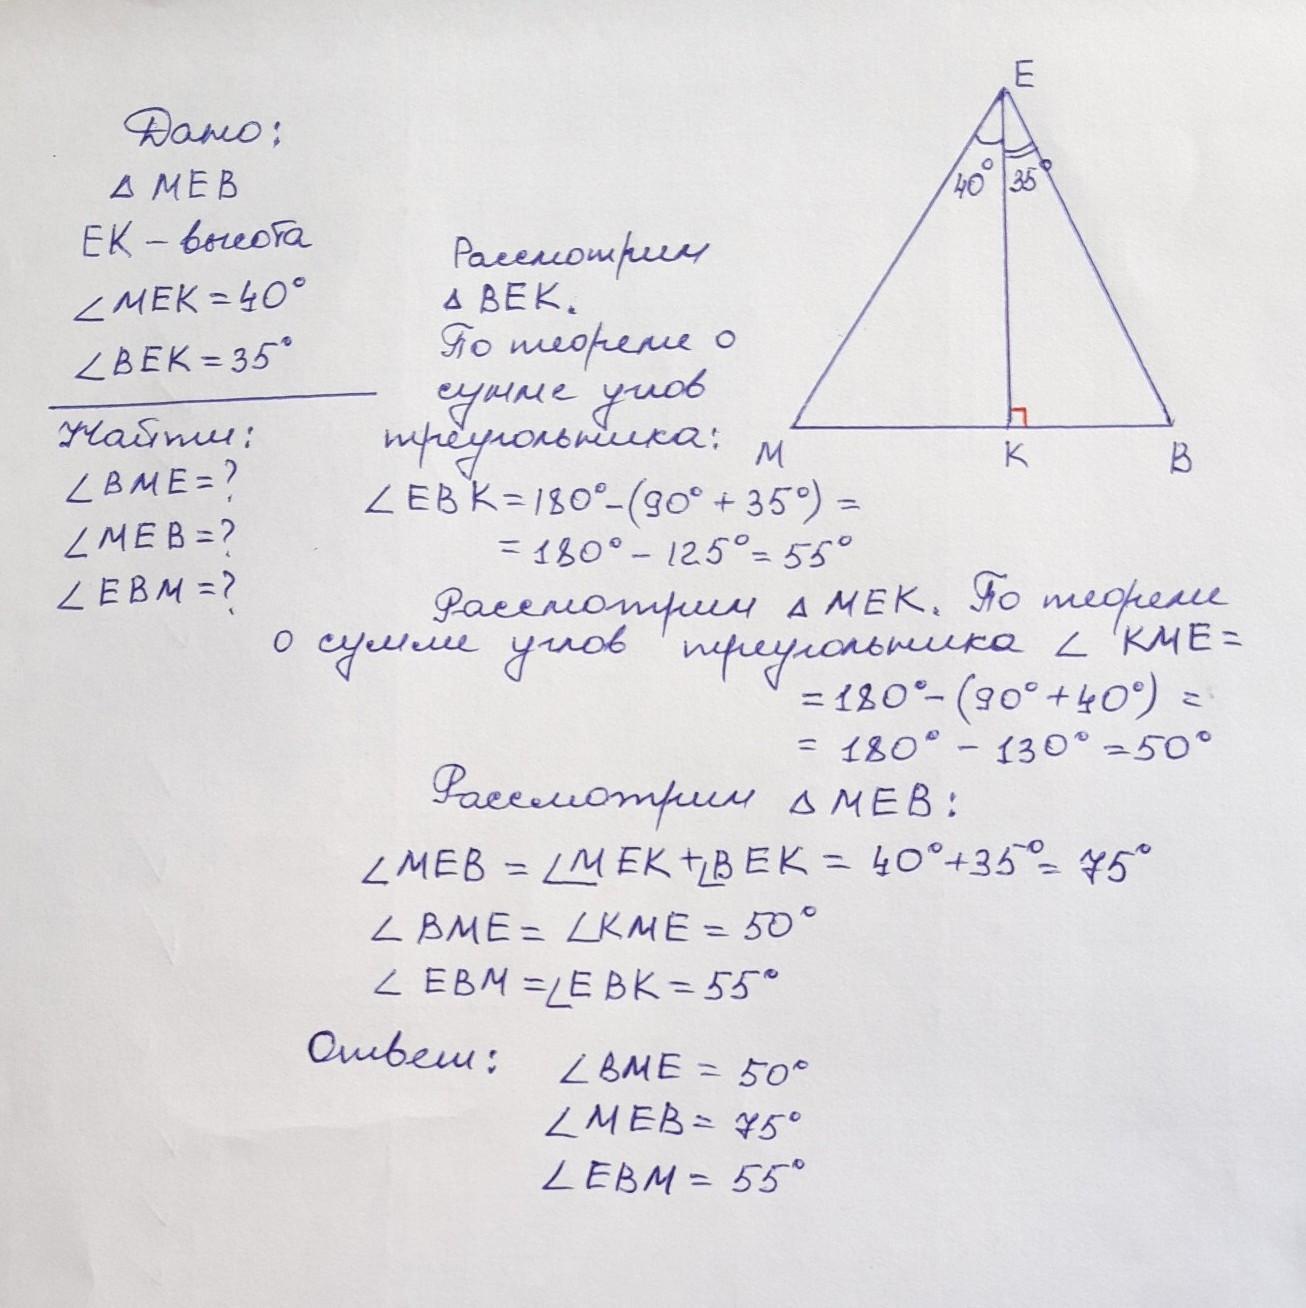 Дано:
△ MEB
EK – высота
∠MEK = 40°
∠BEK = 35°
Найти:
∠BME = ?
∠MEB = ?
∠EBM = ?
E
40° 35°
M K B
Рассмотрим
△ BEK.
По теореме о
сумме углов
треугольника:
∠EBK = 180° – (90° + 35°) =
= 180° – 125° = 55°
Рассмотрим △ MEK. По теореме
о сумме углов треугольника ∠ KME =
= 180° – (90° + 40°) =
= 180° – 130° = 50°
Рассмотрим △ MEB:
∠MEB = ∠MEK + ∠BEK = 40° + 35° = 75°
∠ BME = ∠KME = 50°
∠ EBM = ∠EBK = 55°
Ответ: ∠BME = 50°
∠MEB = 75°
∠EBM = 55°